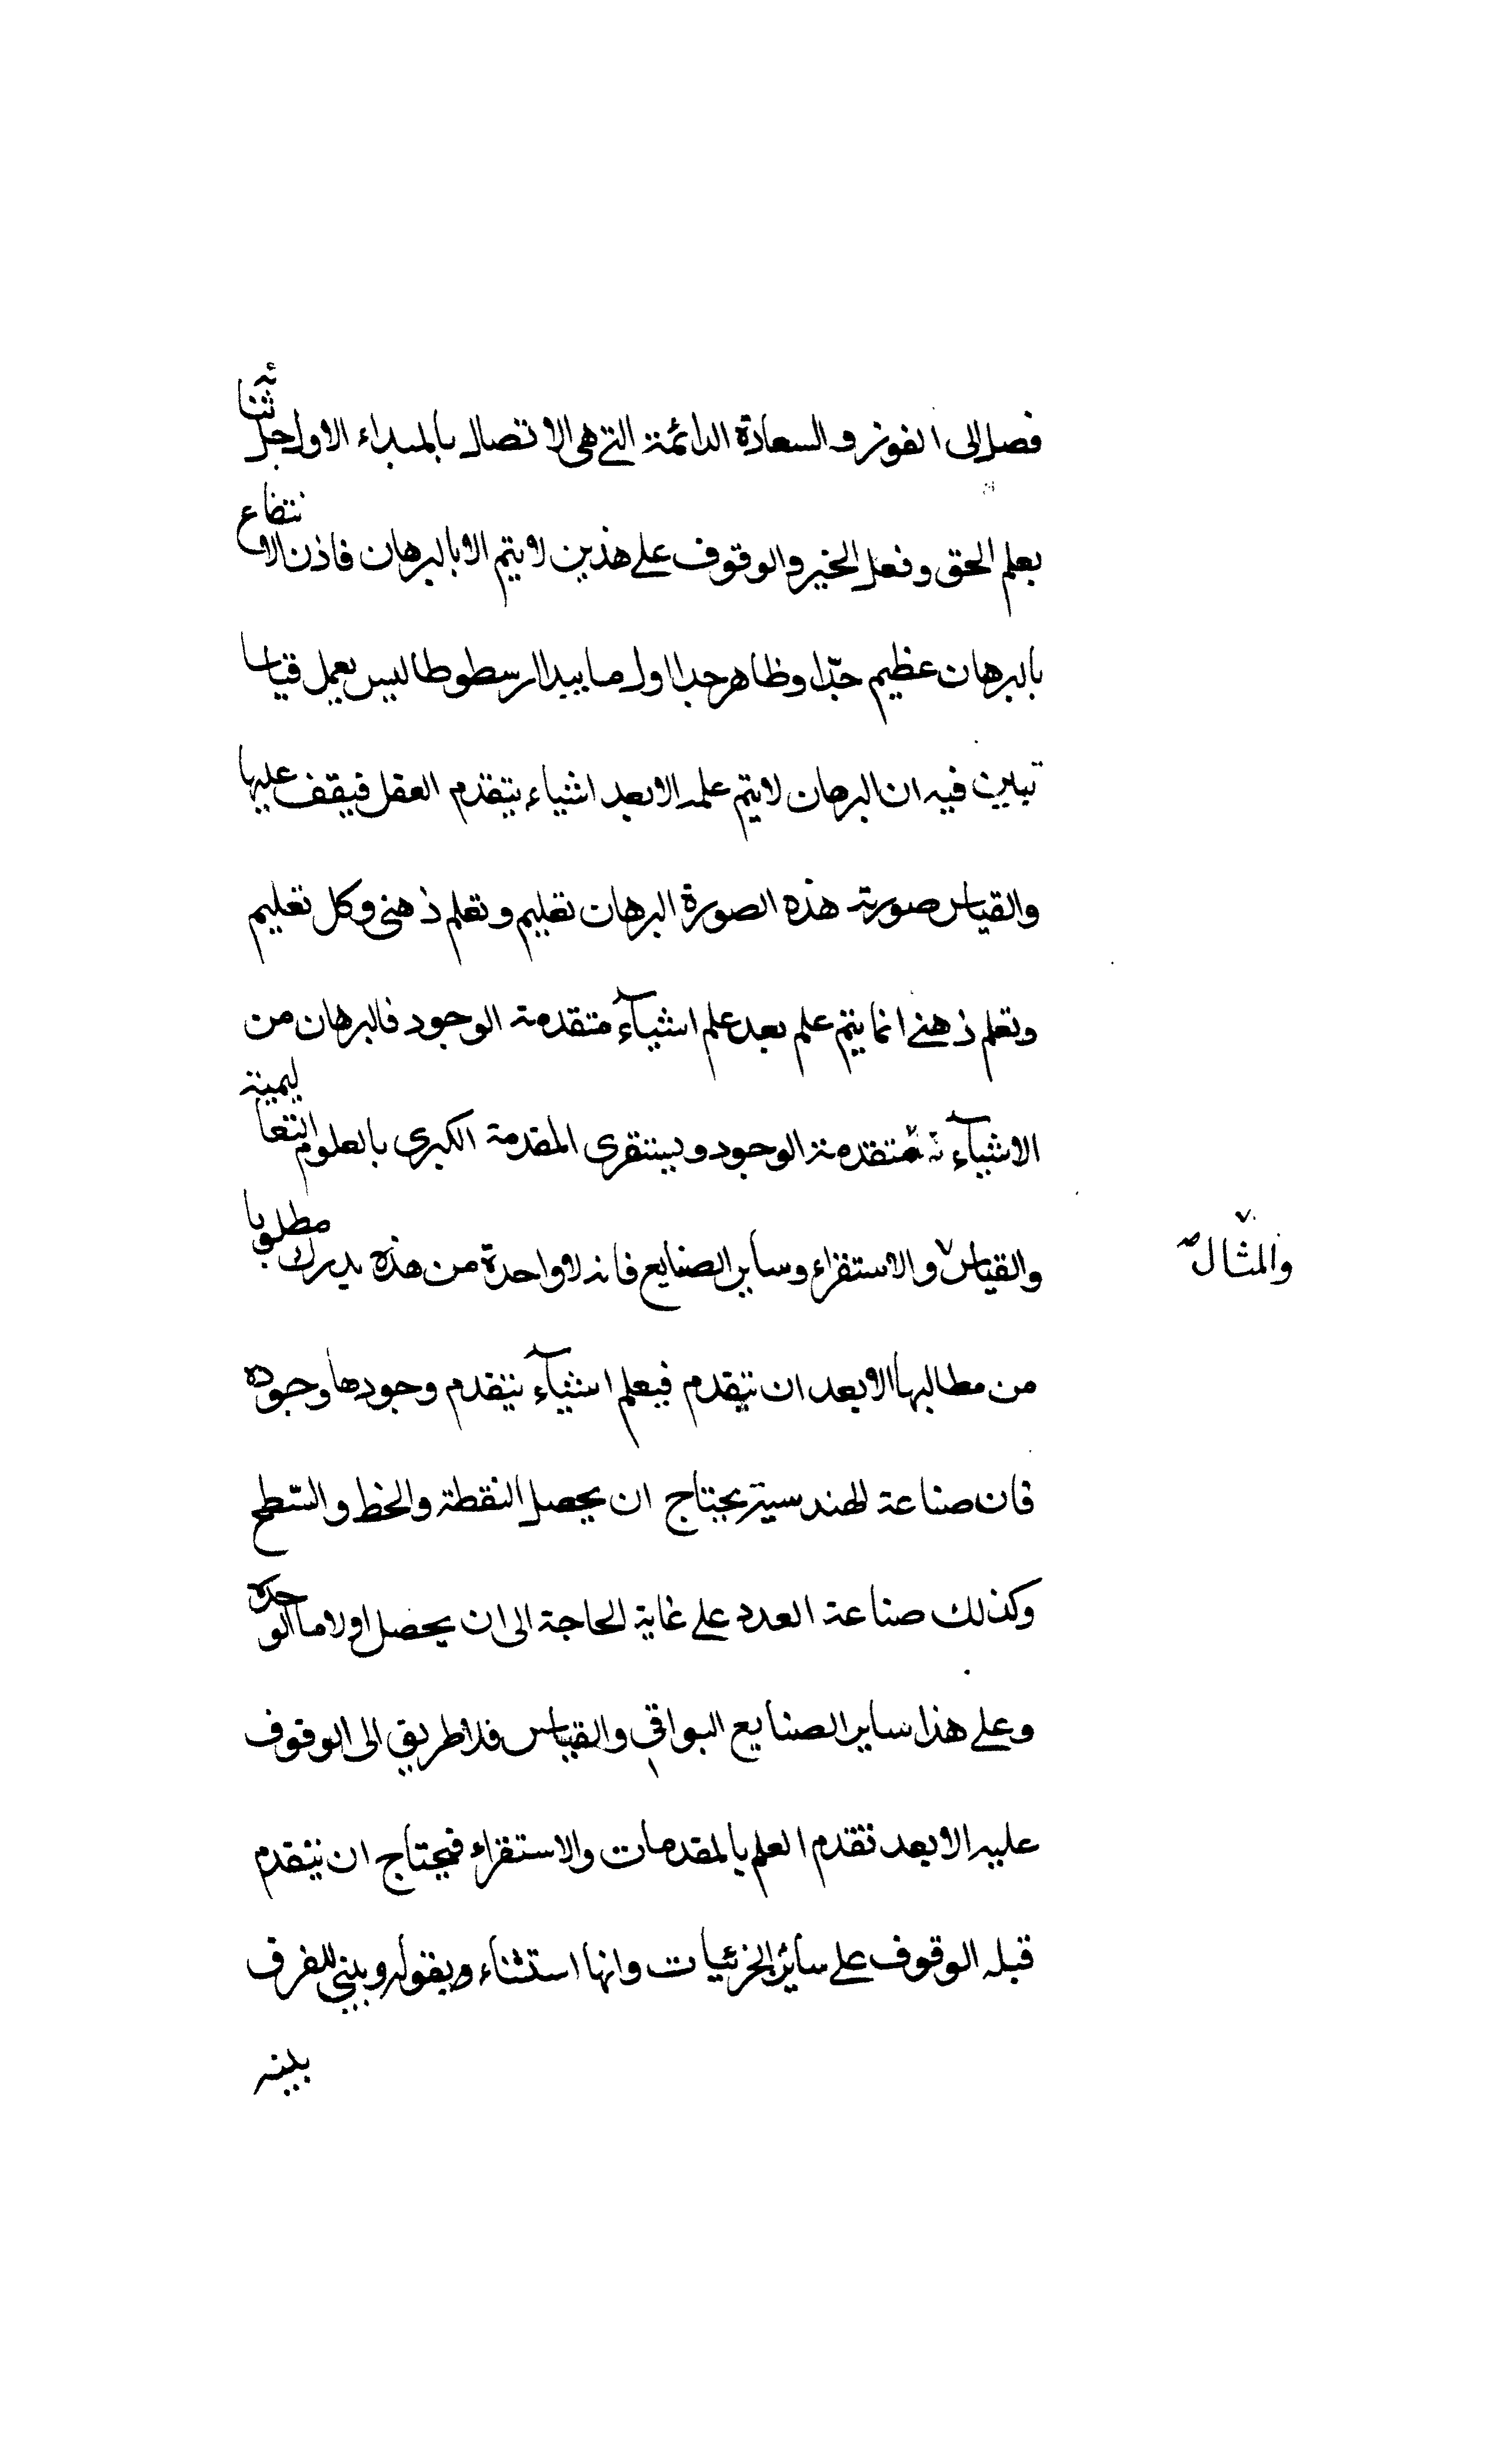 فصل الى الفوز و السعادة الدائمة التي هي الاتصال بالمبداء الاول جل ثناؤه
بعلم الحق وفعل الخير والوقوف على هذين لا يتم الا بالبرهان فاذن الانتفاع
بالبرهان عظيم جدّا وظاهر جدا اول ما يبدا ارسطوطاليس يعمل قياسا
تبين فيه ان البرهان لا يتم علمه الا بعد اشياء يتقدم العقل فيقف عليها
والقياس صورته هذه الصورة البرهان تعليم وتعلم ذهني وكل تعليم
وتعلم ذهني انما يتم علم بعد علم اشيآء متقدمة الوجود فالبرهان من
الاشيآء متقدمة الوجود ويستقرى المقدمة الكبرى بالعلوم التعاليمية
والقياس والاستقراء وساير الصنايع فانه لا واحدة من هذه يدرك مطلوبا
والمثال صح
من مطالبها الا بعد ان يتقدم فيعلم اشيآء يتقدم وجودها وجوده
فان صناعة الهندسية يحتاج ان يحصل النقطة والخط والسّطح
وكذلك صناعة العدد على غاية الحاجة الى ان يحصل اولا ما الوحدة
وعلى هذا ساير الصنايع البواقي والقياس فلا طريق الى الوقوف
عليه الا بعد تقدم العلم بالمقدمات والاستقراء فيحتاج ان يتقدم
قبله الوقوف على سائر الجزئيات وانها استثناء ويقوله وبيني للفرف
بينه